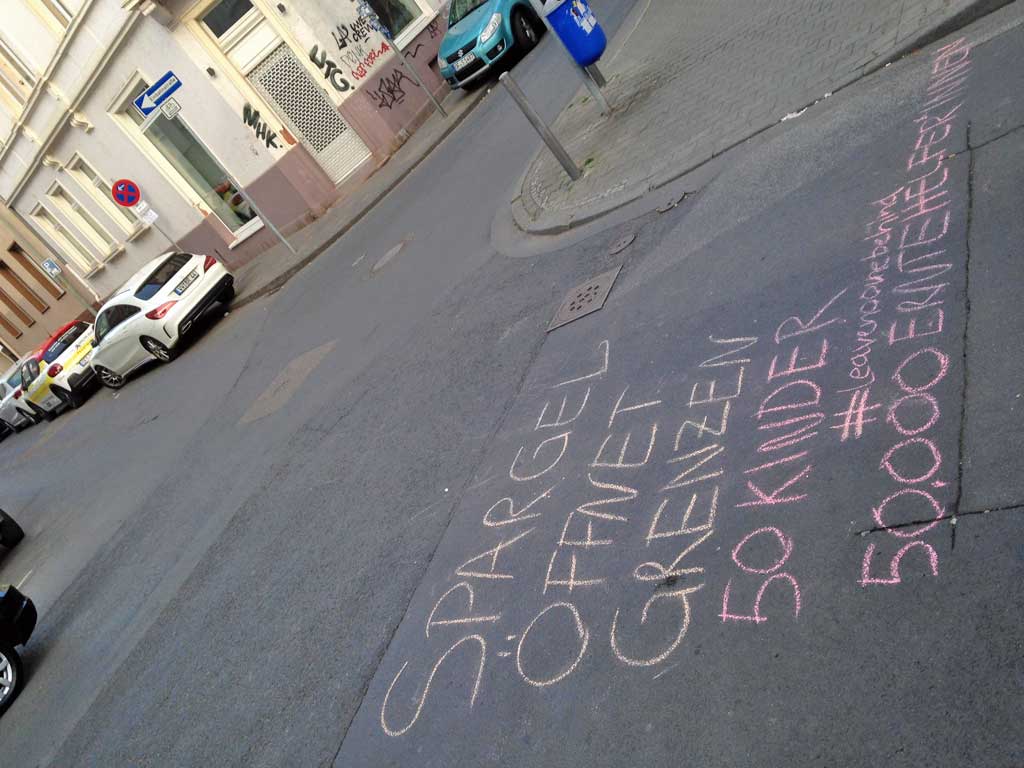 SPARGEL
ÖFFNET
GRENZEN
50 KINDER
#leavenoonebehind
50.000 ERNTEHELFER*INNEN
MHK
LTG